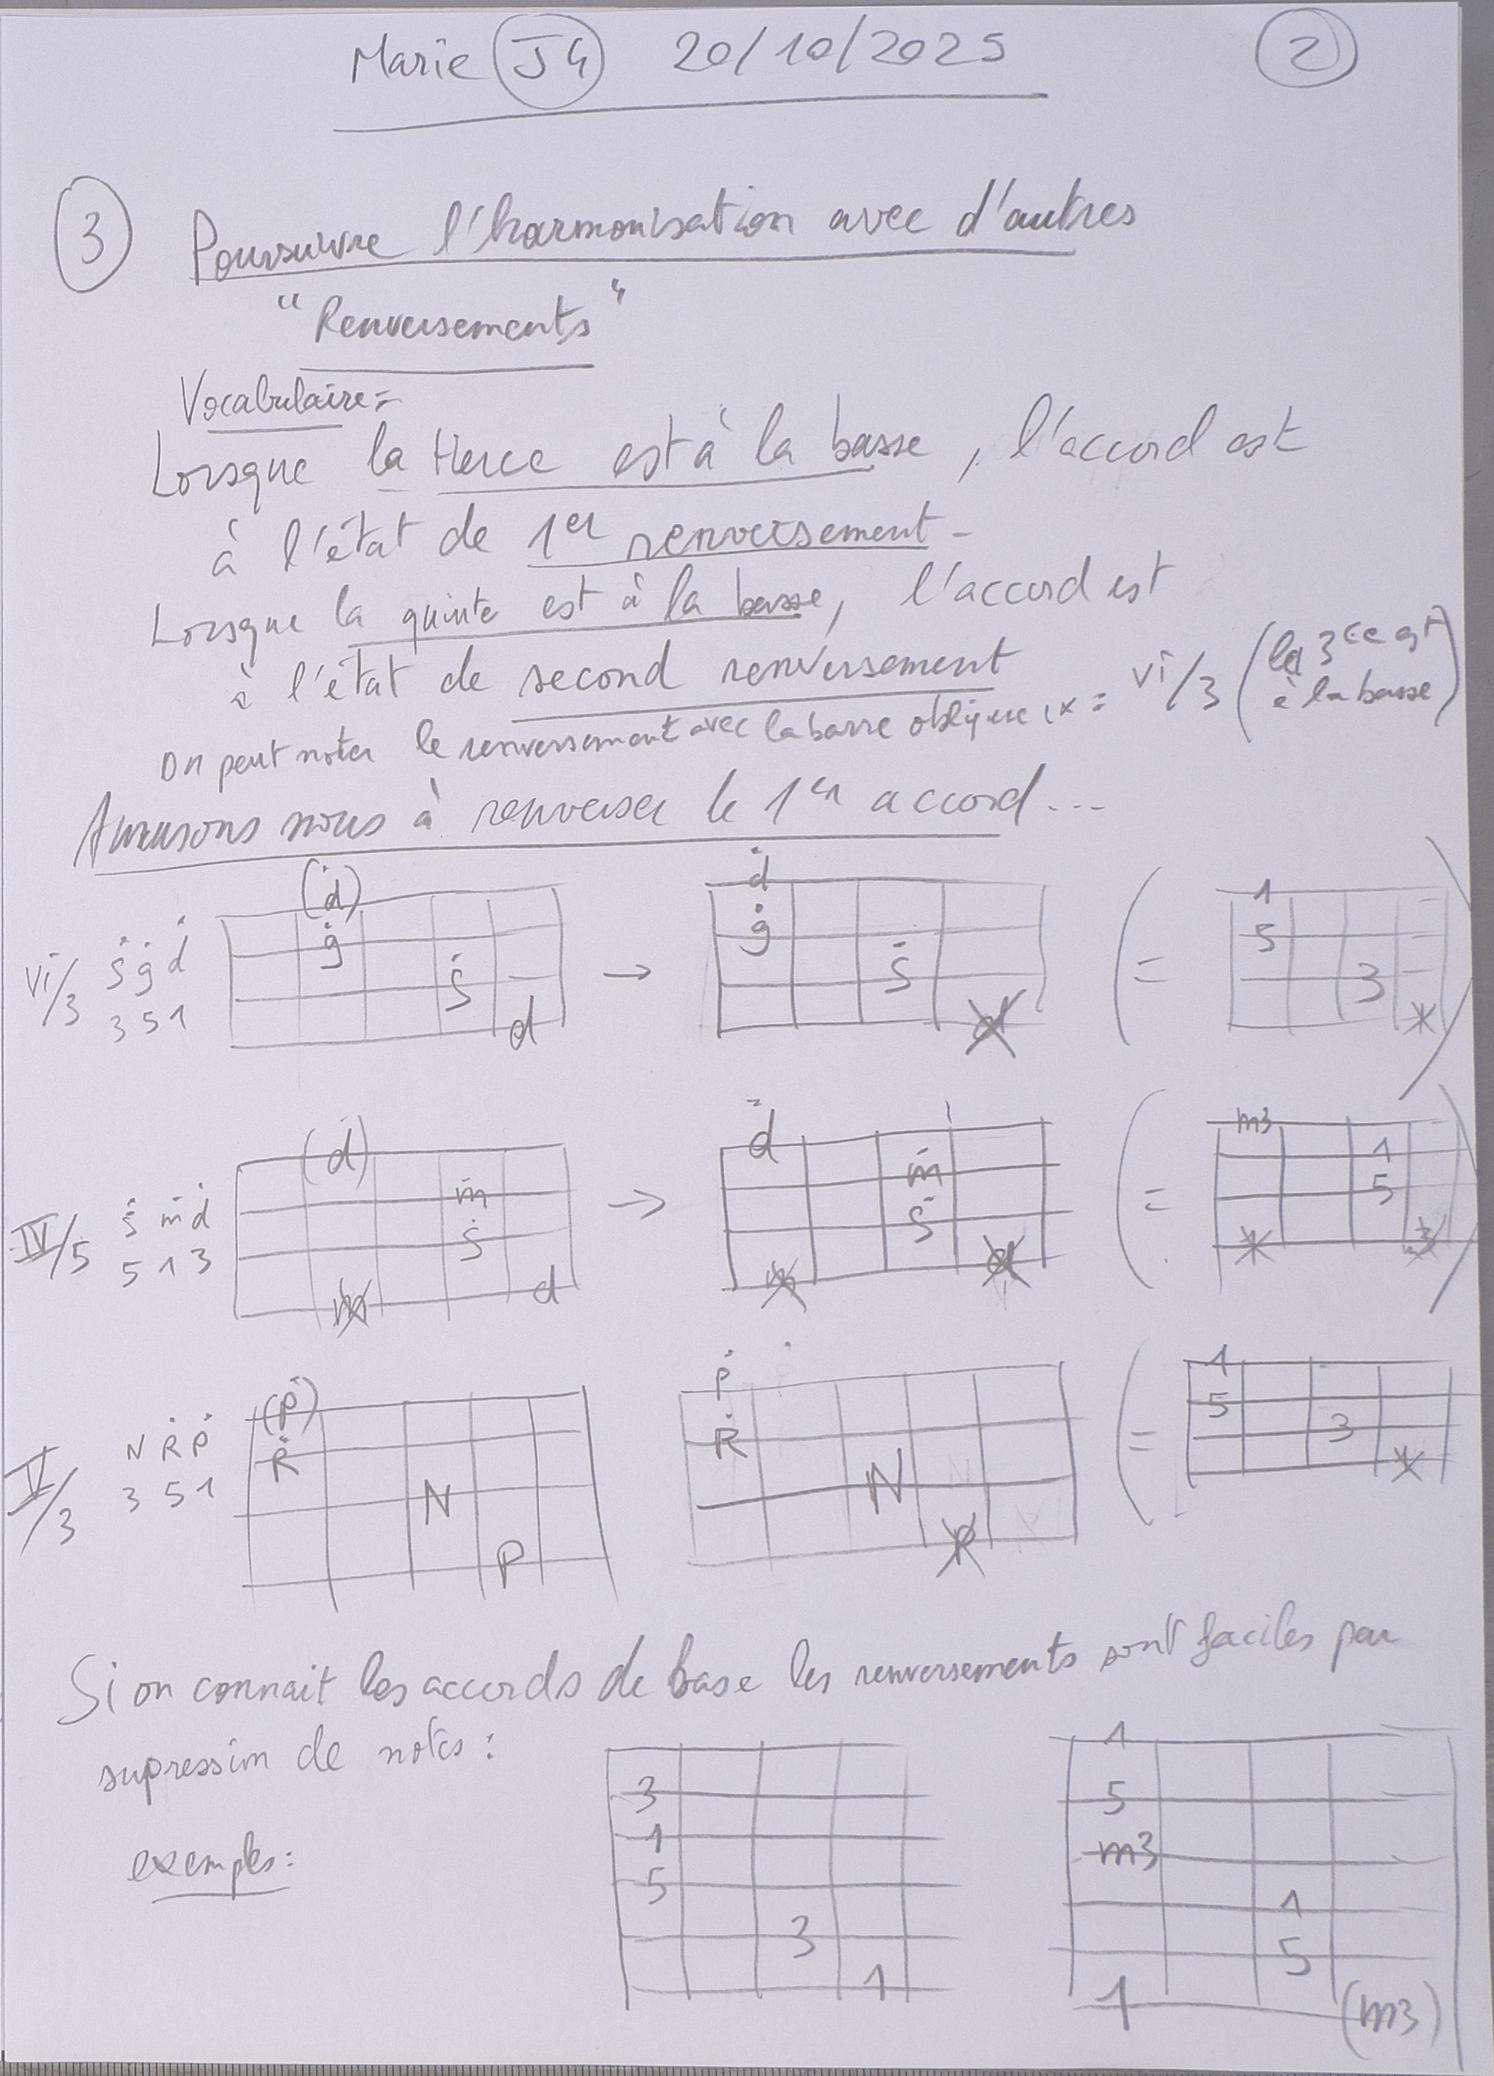 Marie J4 20/10/2025 2
3 Poursuivre l'harmonisation avec d'autres
"Renversements"
Vocabulaire =
Lorsque la tierce est à la basse, l'accord est
à l'état de 1er renversement.
Lorsque la quinte est à la basse, l'accord est
à l'état de second renversement
on peut noter le renversement avec la barre oblique ex = vi/3 (la 3ce est
à la basse)
Amusons nous à renverser le 1er accord...
vi/3 ṡ ġ ḋ
3 5 1
(ḋ)
ġ
ṡ
d
→
ḋ
ġ
ṡ
d
( =
1
5
3
* )
IV/5 ṡ ṁ ḋ
5 1 3
(ḋ)
ṁ
ṡ
m d
→
ḋ
ṁ
ṡ
m d
( =
m3
1
5
* 3 )
V/3 N Ṙ Ṗ
3 5 1
(Ṗ)
Ṙ
N
P
Ṗ
Ṙ
N
P
( =
1
5
3
Si on connait les accords de base les renversements sont faciles par
supression de notes :
exemples :
3
1
5
3
1
1
5
m3
1
5
1 (m3)